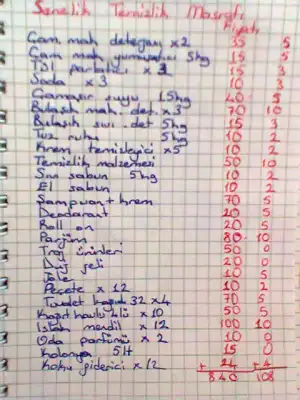 Senelik Temizlik Masrafı
Fiyatı
Çam. mak deterjan x2 35 5
Çam mak yumuşatıcı 5kg 15 5
Tül parlatıcı x 3 15 3
Soda x 3 10 3
Çamaşır suyu 15kg 40 5
Bulaşık mak. det. x3 70 10
Bulaşık sıvı det 5kg 15 3
Tuz ruhu 5kg 10 2
Krem temizleyici x5 10 2
Temizlik malzemesi 50 10
Sıvı sabun 5kg 10 2
El sabun 10 2
Şampuan + krem 70 5
Deodorant 20 5
Roll on 20 5
Parfüm 80 10
Traş ürünleri 50 0
Duş jeli 20 0
10 5
Peçete x 12 10 2
Tuvalet kağıdı 32 x4 70 5
Kağıt havlu x 10 50 5
Islak mendil x 12 100 10
Oda parfümü x 2 10 0
Kolonya 5lt 15 0
Koku giderici x 12 + 24 + 4
840 108